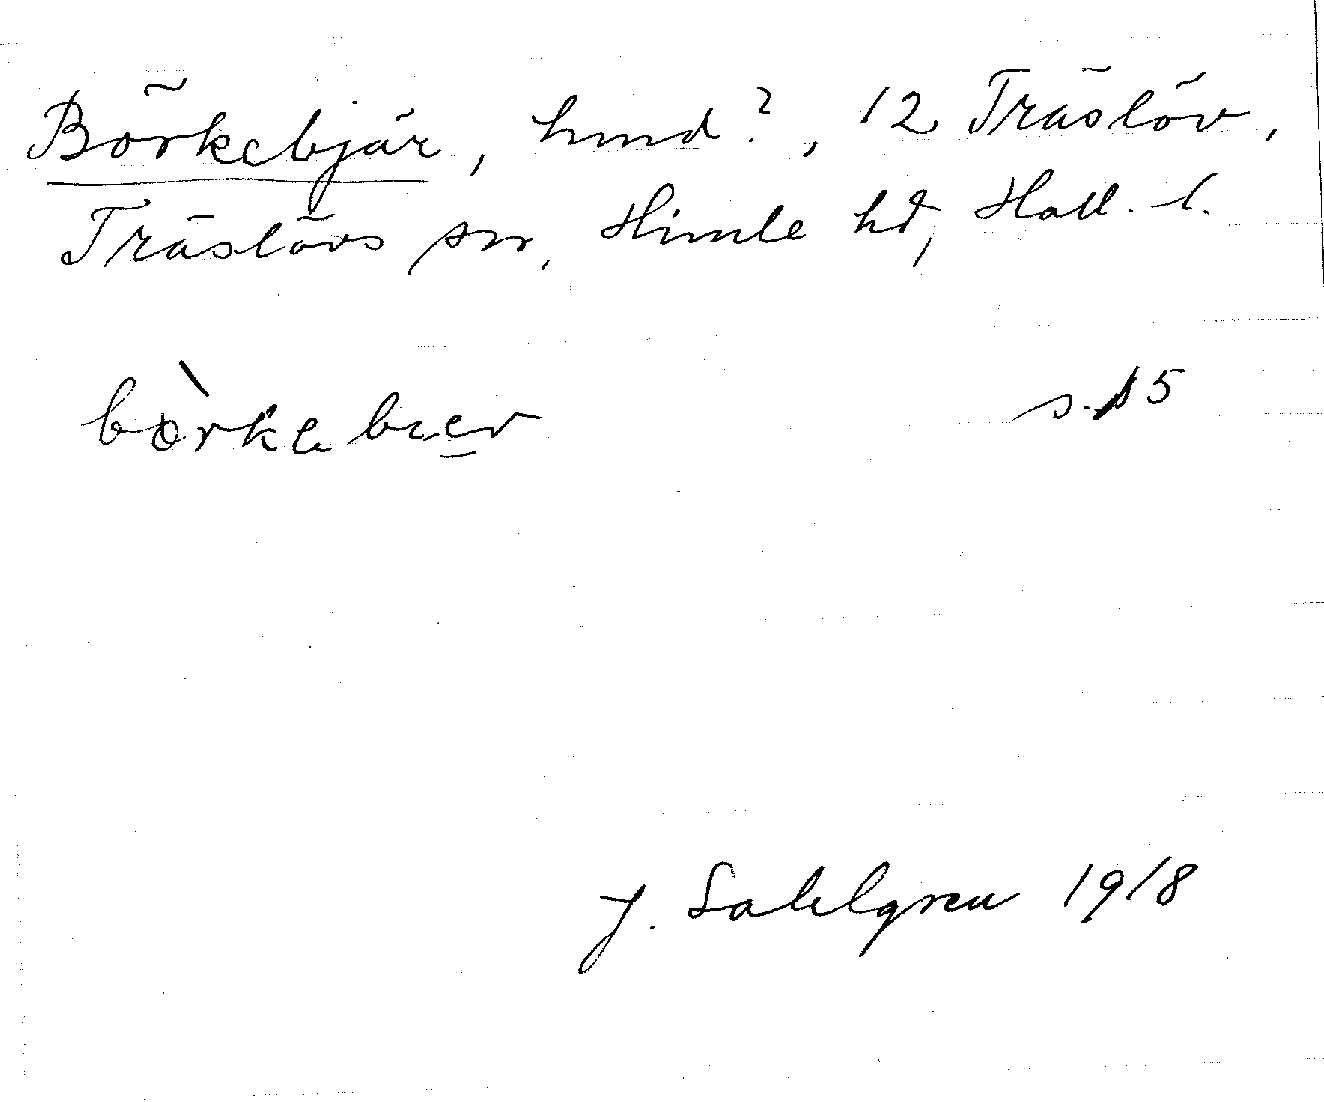 Börkebjär, hmd?, 12 Träslöv,
Träslövs sn, Himle hd, Hall. l.
bòrkabıer s. 15
J. Sahlgren 1918